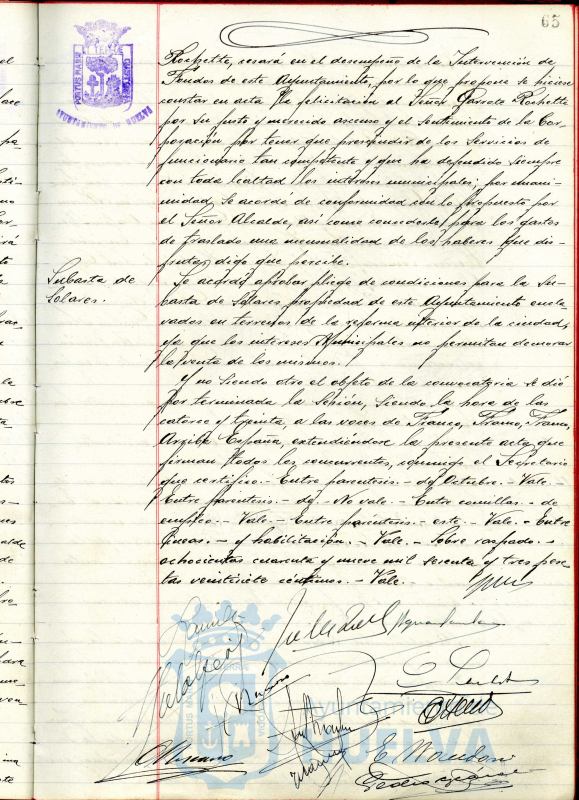 65
PORTUS MARIS ET TERRÆ CUSTODIA
AYUNTAMIENTO DE HUELVA
Rochette, cesará en el desempeño de la Intervención de
Fondos de este Ayuntamiento, por lo que propone se hiciese
constar en acta la felicitación al Señor Garrote Rochette
por su justo y merecido ascenso y el sentimiento de la Cor-
poración por tener que prescindir de los Servicios de
funcionario tan competente y que ha defendido siempre
con toda lealtad los intereses municipales; por unani-
midad, se acordó de conformidad con lo propuesto por
el Señor Alcalde, así como concederle para los gastos
de traslado una mensualidad de los haberes que dis-
fruta, digo que percibe.
Subasta de
Solares.
Se acordó aprobar pliego de condiciones para la Su-
basta de Solares propiedad de este Ayuntamiento encla-
vados en terrenos de la reforma interior de la ciudad,
ya que los intereses Municipales no permitan demorar
la venta de los mismos.
Y no siendo otro el objeto de la convocatoria se dió
por terminada la Sesión, siendo la hora de las
catorce y treinta, a las voces de Franco, Franco, Franco,
Arriba España, extendiéndose la presente acta que
firman todos los concurrentes, conmigo el Secretario
que certifico.- Entre parentesis.- Octubre.- Vale.-
Entre parentesis.- dg. No vale.- Entre comillas.- de
empleo.- Vale.- Entre parentesis.- este.- Vale.- Entre
líneas.- y habilitación.- Vale.- Sobre raspado.-
ochocientas cuarenta y nueve mil sesenta y tres pese-
tas veintisiete céntimos.- Vale.
Ayuntamiento
HUELVA